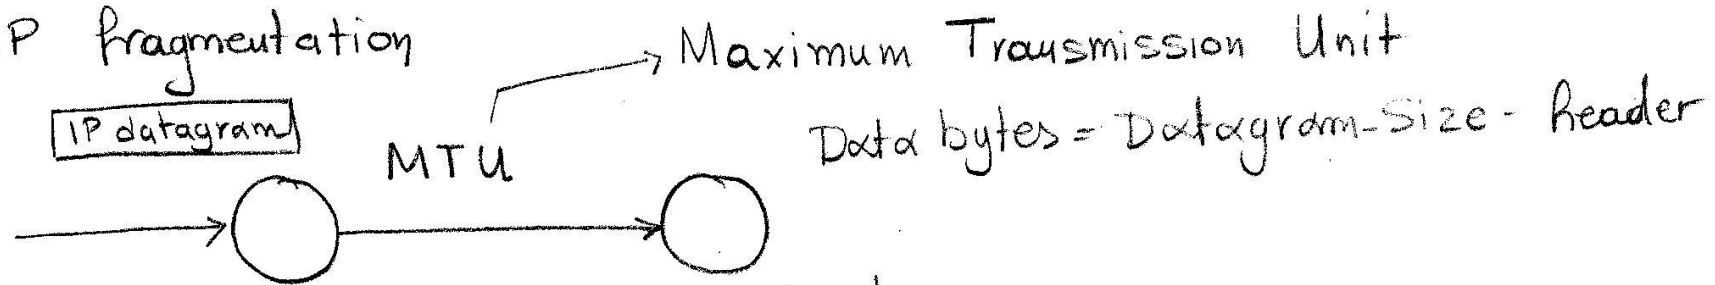 P fragmentation
Maximum Transmission Unit
IP datagram
Data bytes = Datagram-Size - header
MTU